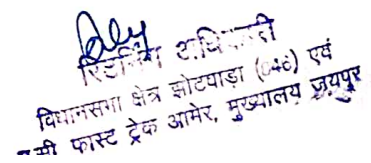 रिटर्निंग अधिकारी
विधानसभा क्षेत्र झोटवाड़ा (046) एवं
सी फास्ट ट्रेक आमेर, मुख्यालय जयपुर